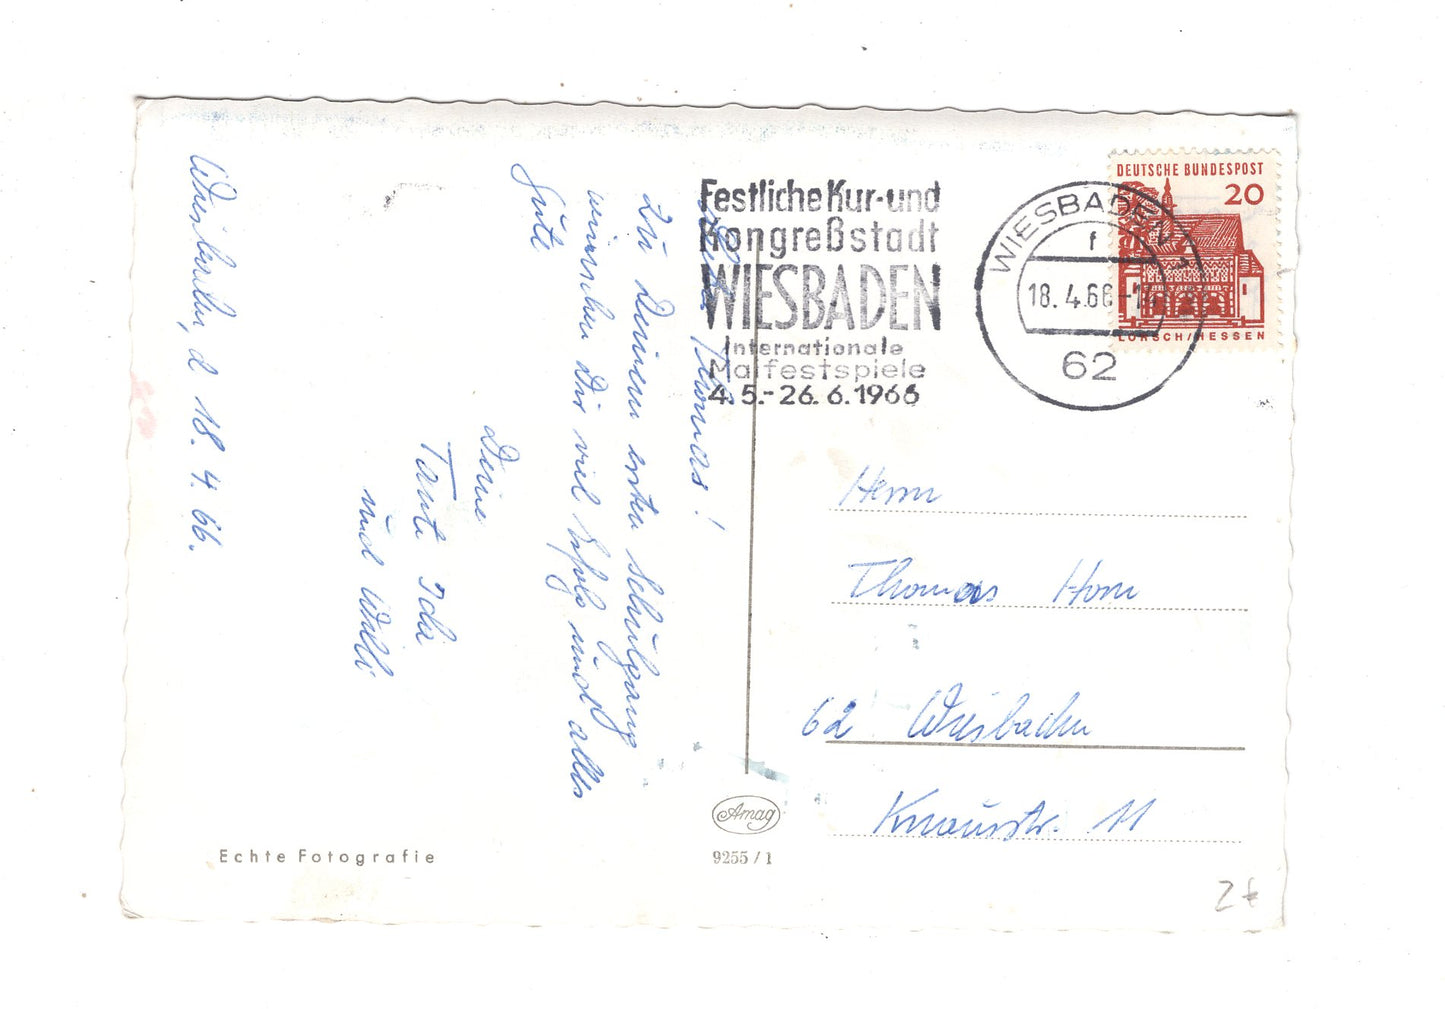 Wiesbaden, d 18. 4. 66.
Lieber Thomas!
Zu Deinem ersten Schulgang
wünschen Dir viel Erfolg und alles
Gute
Deine
Tante Ida
und Willi
Festliche Kur- und
Kongreßstadt
WIESBADEN
Internationale
Maifestspiele
4.5.-26.6.1966
WIESBADEN 1
f
18.4.66
62
DEUTSCHE BUNDESPOST
20
LORSCH/HESSEN
Herrn
Thomas Horn
62 Wiesbaden
Knausstr. 11
Amag
9255/1
Echte Fotografie